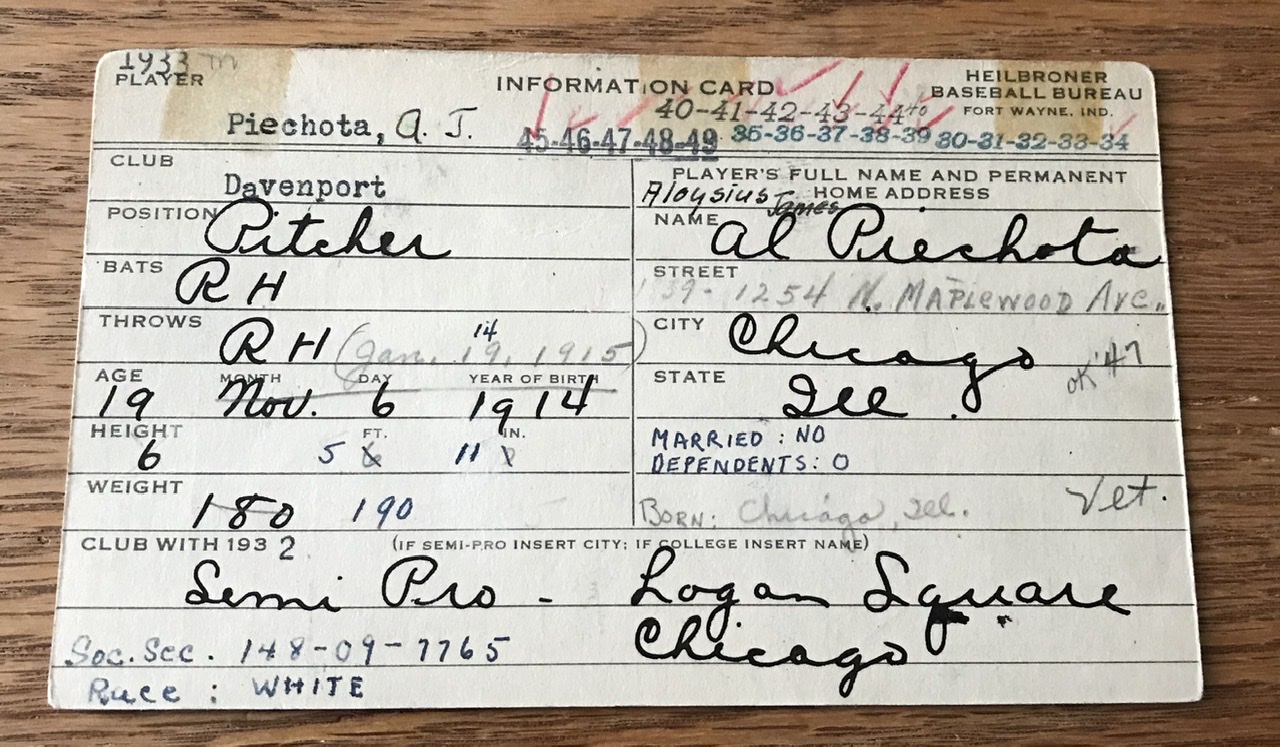 1933 m
PLAYER
INFORMATION CARD
HEILBRONER
BASEBALL BUREAU
FORT WAYNE, IND.
Piechota, A. J.
40-41-42-43-44
45-46-47-48-49 35-36-37-38-39 30-31-32-33-34
CLUB
Davenport
PLAYER'S FULL NAME AND PERMANENT
HOME ADDRESS
Aloysius James
POSITION Pitcher
NAME Al Piechota
BATS RH
STREET 1254 N. MAPLEWOOD AVE.
THROWS RH (Jan. 19, 1915) 14
CITY Chicago
OK '47
AGE MONTH DAY YEAR OF BIRTH
19 Nov. 6 1914
STATE Ill.
HEIGHT FT. IN.
6 5 6 11
MARRIED: NO
DEPENDENTS: 0
WEIGHT
180 190
BORN: Chicago, Ill. Vet.
CLUB WITH 1932 (IF SEMI-PRO INSERT CITY; IF COLLEGE INSERT NAME)
Semi Pro - Logan Square
Chicago
Soc. Sec. 148-09-7765
Race: WHITE